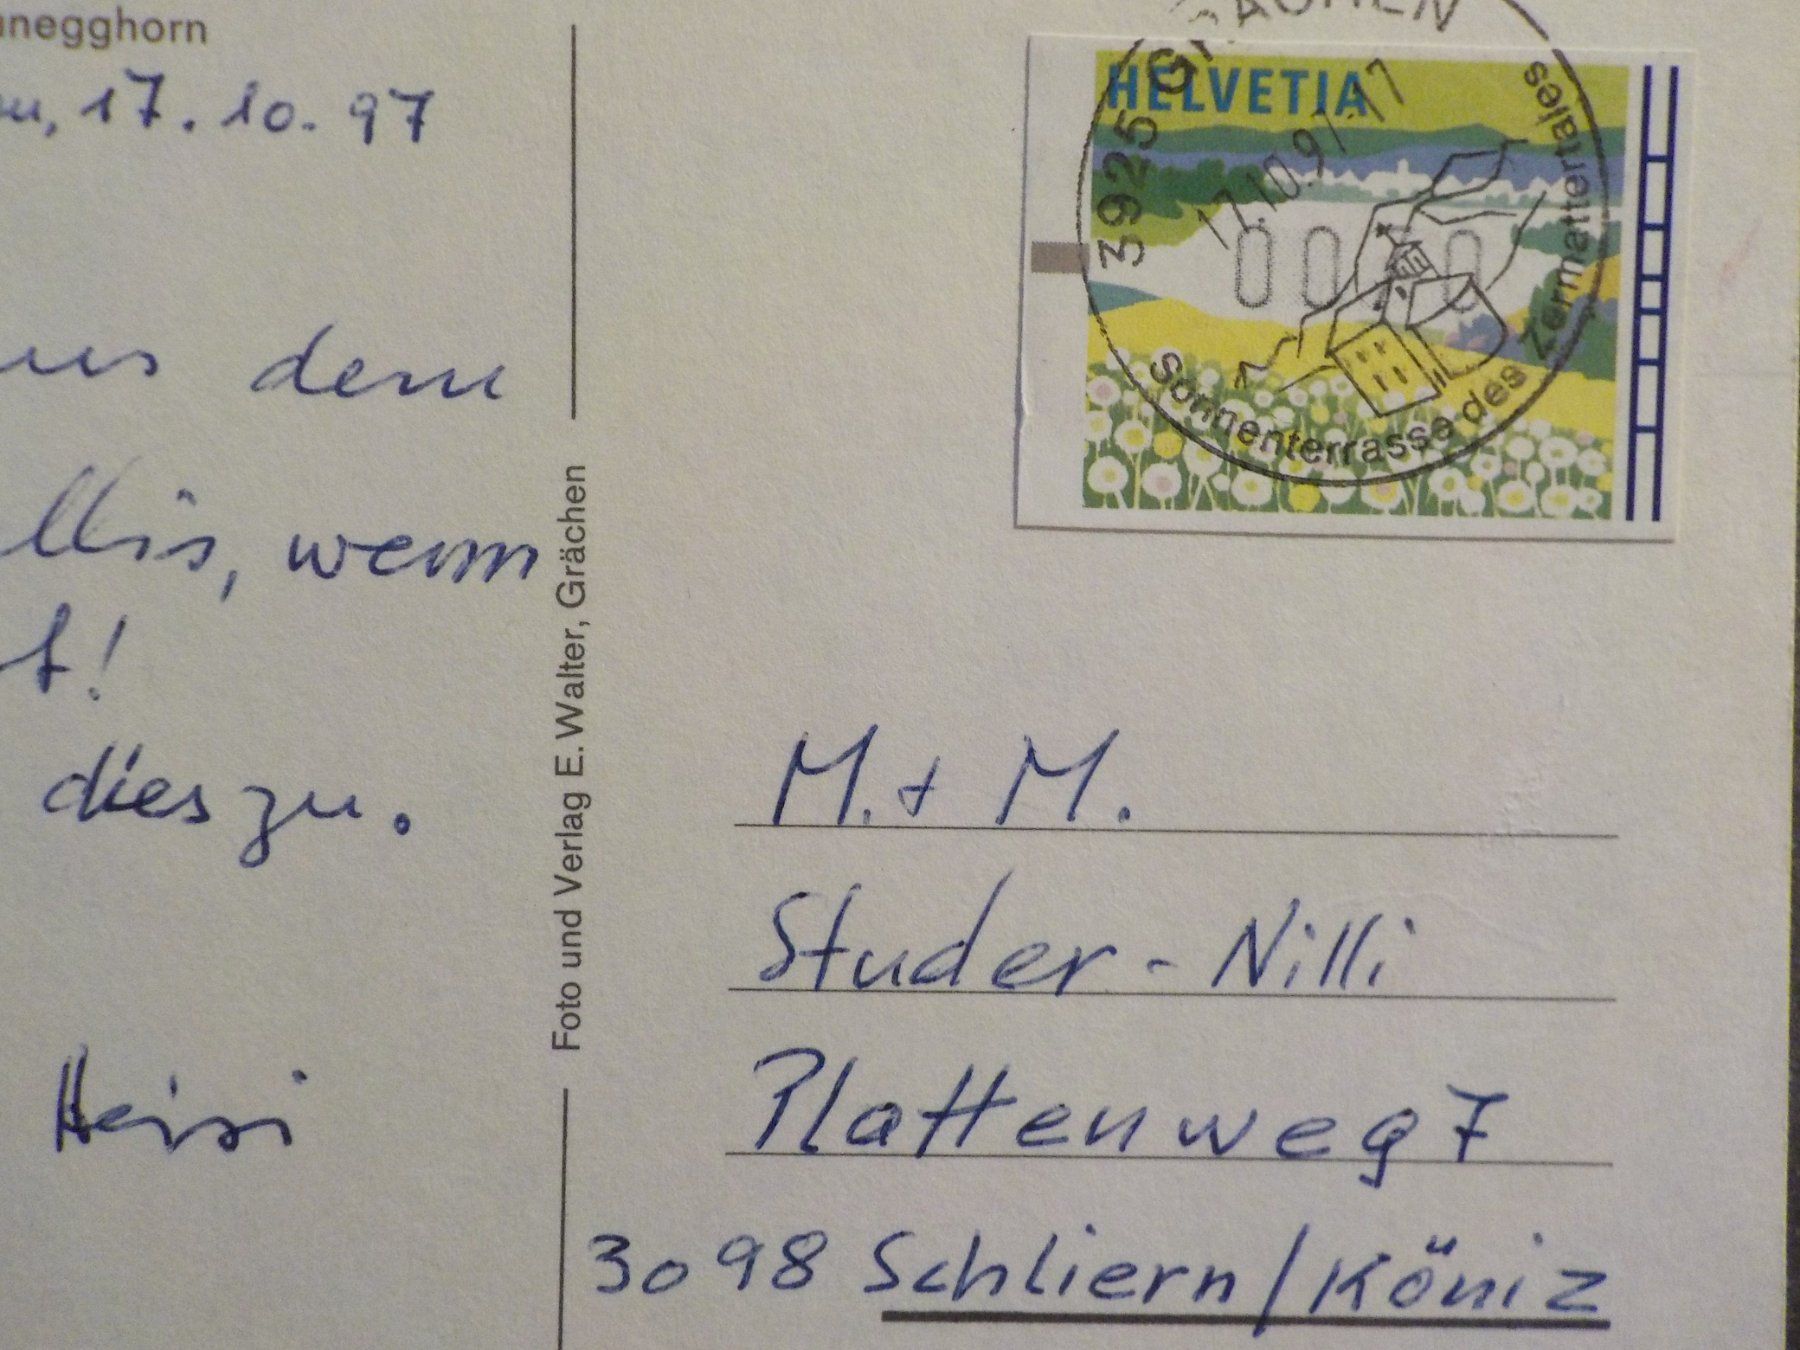 nnegghorn
17.10.97
dem
wenn
t!
dies zu.
Heisi
Foto und Verlag E. Walter, Grächen
HELVETIA
3925 GRÄCHEN
17.10.97-17
Sonnenterrasse des Zermattertales
M. + M.
Studer-Nilli
Plattenweg 7
3098 Schliern/Köniz